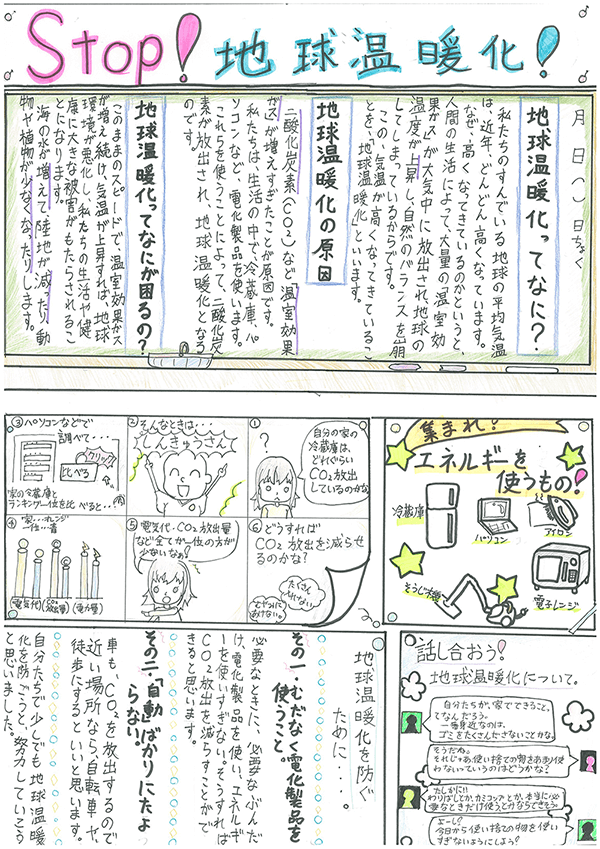 Stop! 地球温暖化!
月 日( )日ちょく
地球温暖化ってなに?
私たちのすんでいる地球の平均気温
は、近年、どんどん高くなっています。
なぜ、高くなってきているのかというと、
人間の生活によって、大量の温室効
果ガスが大気中に放出され、地球の
温度が上昇し、自然のバランスを崩
してしまっているからです。
この、気温が高くなってきているこ
とを、「地球温暖化」といいます。
地球温暖化の原因
二酸化炭素(CO₂)など「温室効果
ガス」が増えすぎたことが原因です。
私たちは、生活の中で、冷蔵庫、パ
ソコンなど、電化製品を使います。
これらを使うことによって、二酸化炭
素が放出され、地球温暖化となる
のです。
地球温暖化ってなにが困るの?
このままのスピードで、温室効果ガス
が増え続け、気温が上昇すれば、地球
環境が悪化し、私たちの生活や健
康に大きな被害がもたらされるこ
とになります。
海の水が増えて、陸地が減ったり、動
物や植物が少なくなったりします。
集まれ?
エネルギーを
使うもの!
冷蔵庫
パソコン
アイロン
そうじ機
電子レンジ
①
自分の家の
冷蔵庫は、
どれぐらい
CO₂放出
しているのかな
?
②そんなときは…
しんきゅうさん
③パソコンなどで
調べて…
クリック
比べる
家の冷蔵庫と
ランキング一位を比べると…
④
家…オレンジ
一位…青
電気代
CO₂放出量
電力量
⑤
電気代・CO₂放出量
など全てが一位の方が
少ないなぁ。
⑥どうすれば
CO₂放出を減らせ
るのかな?
たくさん
地球温暖化を防ぐ
ために…。
その一・むだなく電化製品を
使うこと。
必要なときに、必要なぶんだ
け、電化製品を使い、エネルギ
ーを使いすぎない。そうすれば
CO₂放出を減らすことがで
きると思います。
その二・「自動」ばかりにたよ
らない。
車も、CO₂を放出するので
近い場所なら、自転車や、
徒歩にするといいと思います。
自分たちで少しでも地球温暖
化を防ごうと、努力していこう
と思いました。
話し合おう!
地球温暖化について。
自分たちが、家でできること。
てなんだろう。
一番身近なのは、
ゴミをたくさんださないことかな。
そうだね。
それじゃあ、使い捨ての物をあまり使
わないっていうのはどうかな?
たしかに!!
わりばしとか、カミコップとか、本当に必
要なときだけ使うとかならできそう。
よーし!
今日から使い捨ての物を使い
すぎないようにしよう!